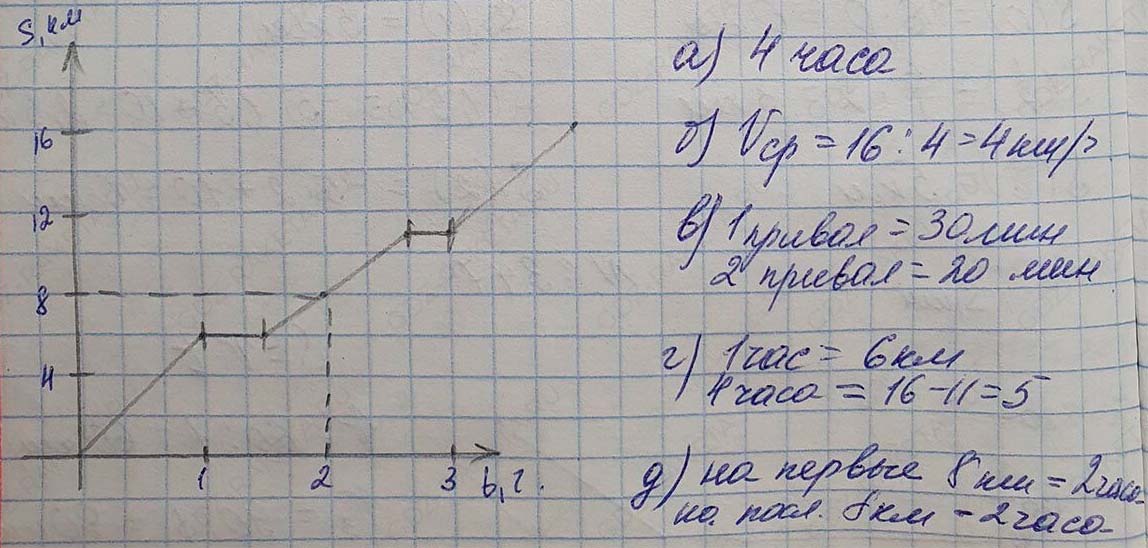 S, км
16
12
8
4
1 2 3 t, ч.
а) 4 часа
б) Vср = 16 : 4 = 4 км/ч
в) 1 привал = 30 мин
2 привал = 20 мин
г) 1 час = 6 км
4 часа = 16 - 11 = 5
д) на первые 8 км = 2 часа
на посл. 8 км - 2 часа